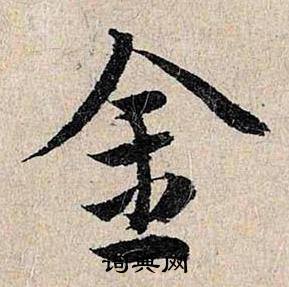 金
词典网